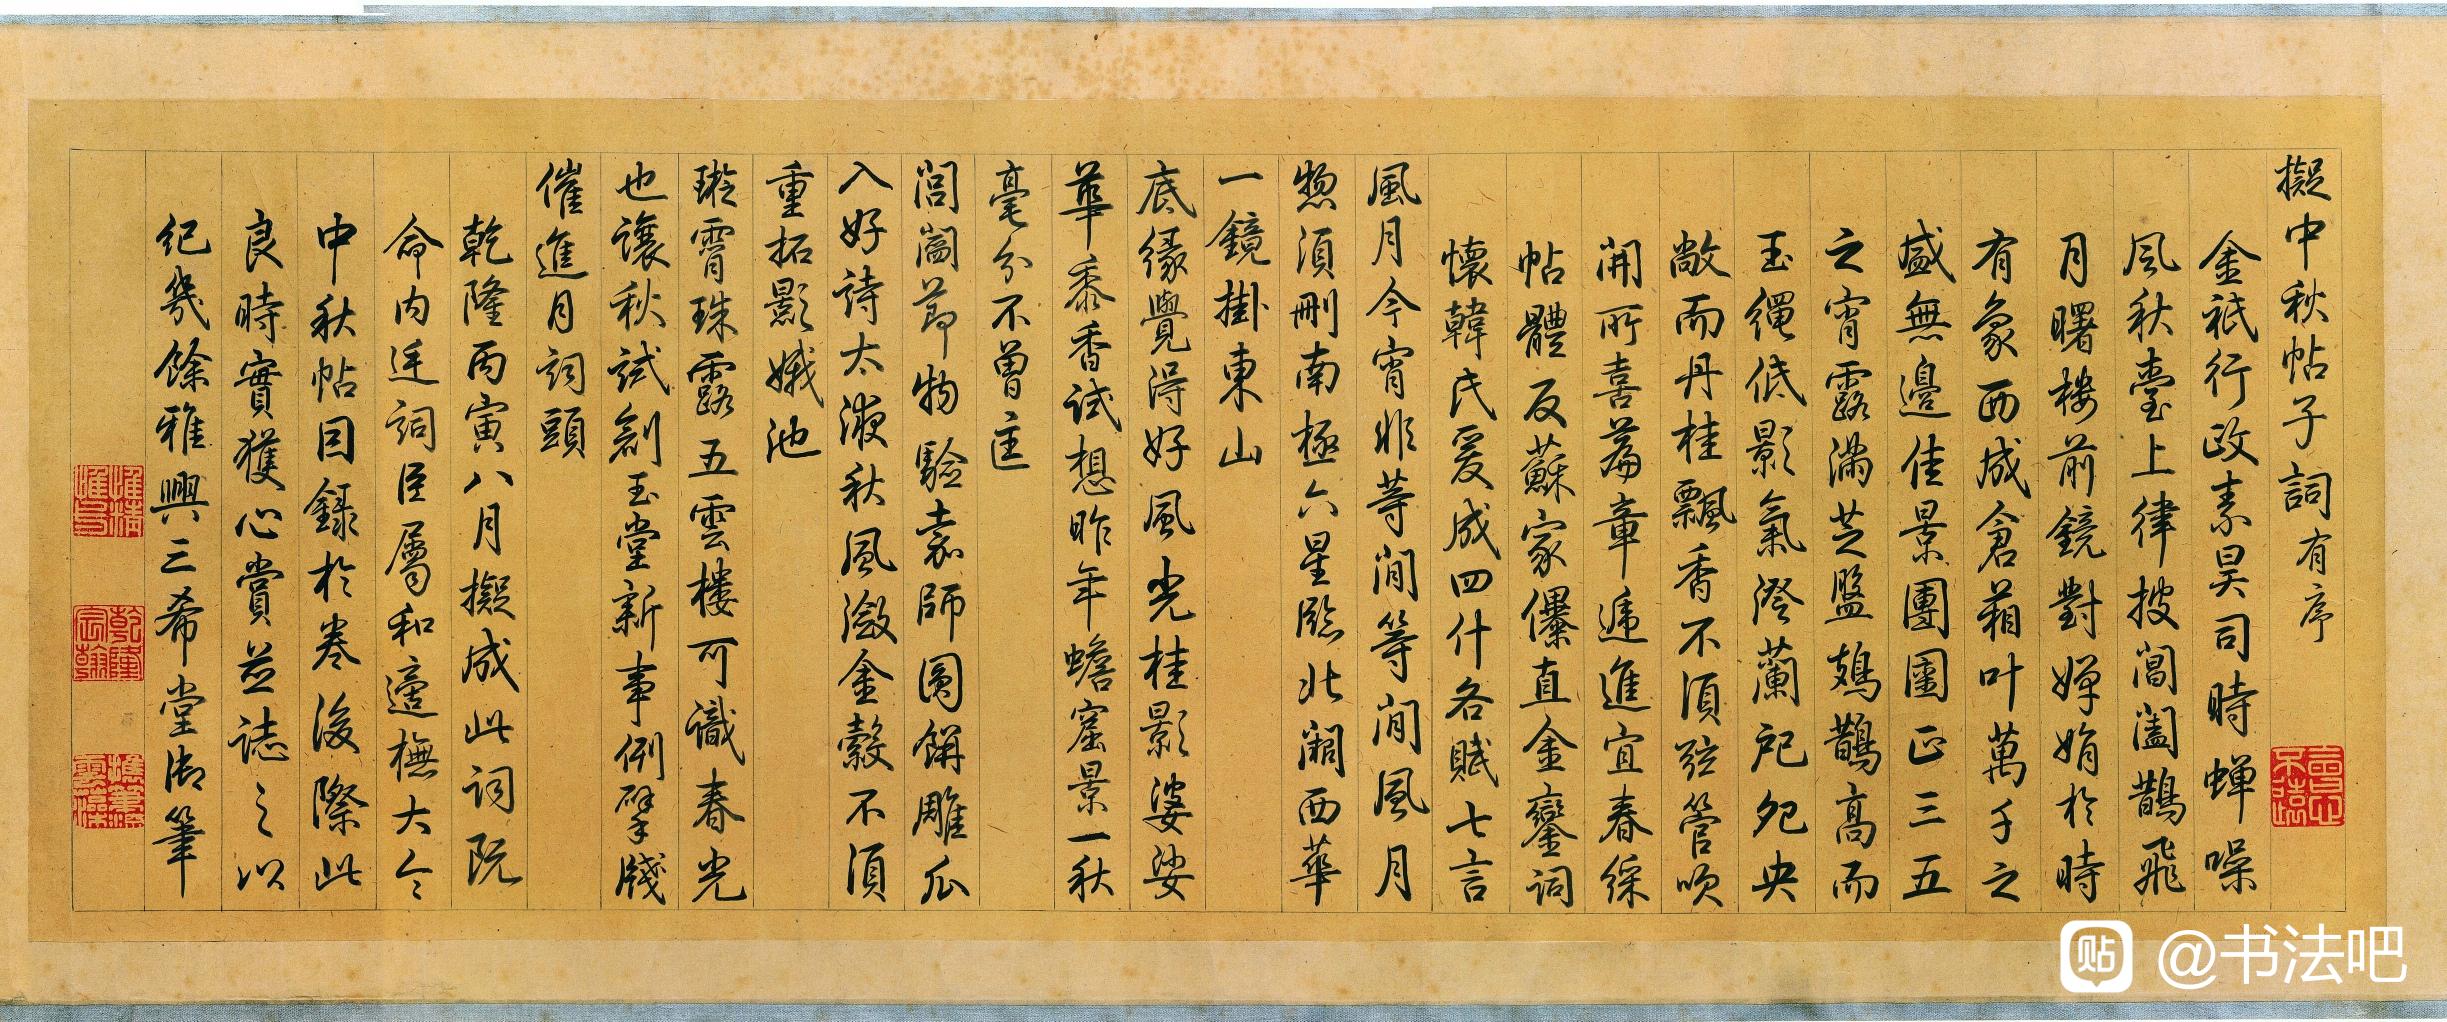 擬中秋帖子詞有序
金祇行政素昊司時蟬噪
風秋臺上律披閶闔鵲飛
月曙樓前鏡對嬋娟於時
有象西成倉箱叶萬千之
盛無邊佳景團圞正三五
之宵露滿芝盤鳷鵲高而
玉繩低影氣澄蘭戺夗央
敞而丹桂飄香不須弦管吹
開所喜篇章遞進宜春綵
帖體反蘇家儤直金鑾詞
懷韓氏爰成四什各賦七言
風月今宵非等閒等閒風月
惣須刪南極六星臨北澜西華
一鏡掛東山
底緣覺得好風光桂影婆娑
華黍香試想昨年蟾窟景一秋
毫分不曾𨑭
閶闔節物驗袁師圓餅雕瓜
入好詩太液秋風瀲金縠不須
重拓影娥池
璇霄珠露五雲樓可識春光
也讓秋試劍玉堂新事例擘牋
催進月詞頭
乾隆丙寅八月擬成此詞既
命內廷詞臣屬和適橅大令
中秋帖因錄於卷後際此
良時實獲心賞並誌之以
紀幾餘雅興三希堂御筆
惟精惟一
乾隆宸翰
會心不遠
@书法吧
贴